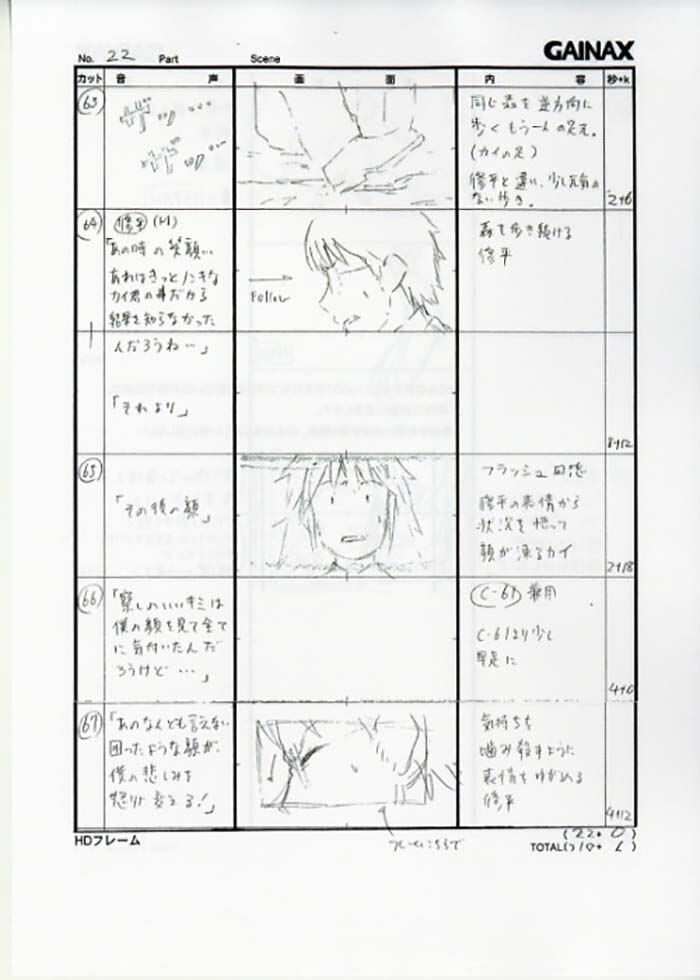 No. 22 Part Scene GAINAX
カット 音 声 画 面 内 容 秒+k
63
同じ森を逆方向に
歩くもう一人の足元。
(カイの足)
修平と違い、少し元気の
ない歩き。
2+6
64 修平(M)
「あの時の笑顔…
あれはきっと
カイ君の事だから
結果を知らなかった
んだろうね…」
「それより」
Follow
森を歩き続ける
修平
8+12
65
「その後の顔」
フラッシュ回想
修平の表情から
状況を悟って
顔が凍るカイ
2+18
66
「察しのいいキミは
僕の顔を見て全て
に気付いたんだ
ろうけど…」
C-61 兼用
C-61より少し
早足に
4+0
67
「あのなんとも言えない
困ったような顔が、
僕の悲しみを
怒りに変える!」
気持ちを
噛み殺すように
表情をゆがめる
修平
4+12
(22+0)
HDフレーム
TOTAL(